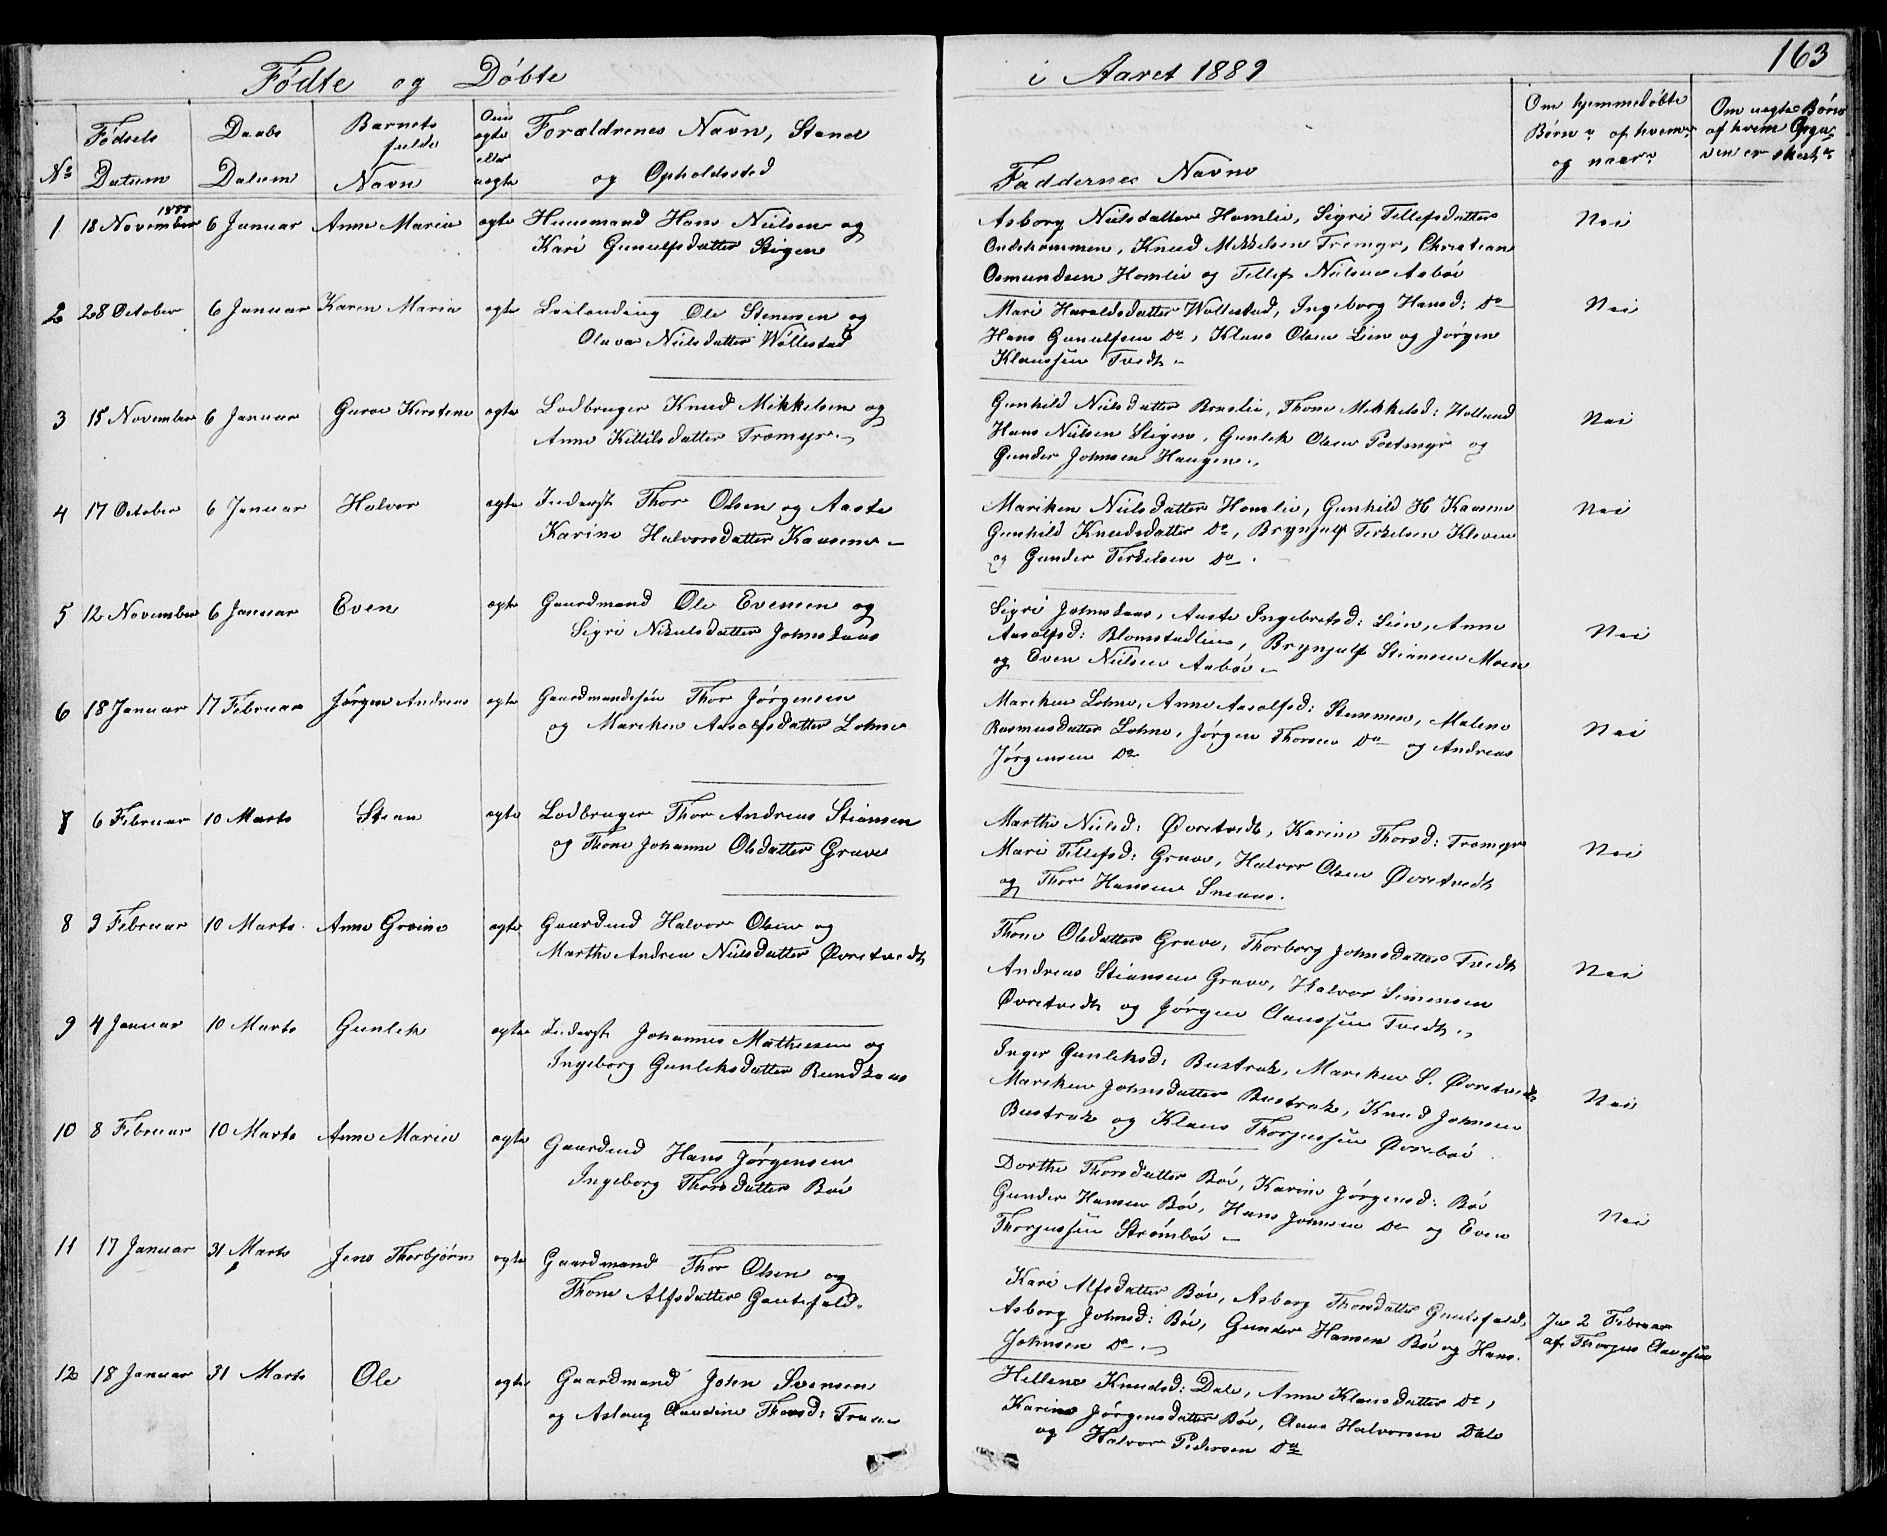 163
Fødte og Døbte
i Aaret 1889
No
Fødsels Datum
Daabs Datum
Barnets fulde Navn
Om ægte eller uægte
Forældrenes Navn, Stand og Opholdssted
Faddernes Navne
Om hjemmedøbte Børn, af hvem og naar
Om uægte Børn af hvem
1888
1 18 November 6 Januar Anne Maria ægte Huusmand Hans Nielsen og
Kari Gunulfsdatter Stigen
Asborg Nielsdatter Homlie, Sigri Tellefsdatter
Knud Mikkelsen Tromyr, Christian
Osmundsen Homlie og Tellef Nielsen Aabøe
Nei
2 28 October 6 Januar Karen Maria ægte Leilending Ole Stenersen og
Olava Nielsdatter Wøllestad
Mari Haraldsdatter Wøllestad, Ingeborg Hansd: Do
Hans Gunulfsen Do, Klaus Olsen Lien og Jørgen
Klaussen Tvedt
Nei
3 15 November 6 Januar Guroe Kirstene ægte Lodbruger Knud Mikkelsen og
Anne Kittilsdatter Tromyr
Gunhild Nielsdatter Bruslie, Thone Mikkelsd: Holland
Hans Nielsen Stigen, Gunlek Olsen Postmyr og
Gunder Johnsen Haugen
Nei
4 17 October 6 Januar Halvor ægte Inderst Thor Olsen og Aaste
Karine Halvorsdatter Kaasene
Mariken Nielsdatter Homlie, Gunhild H Kaasene
Gunhild Knudsdatter Do, Brynjulf Terkelsen Kleven
og Gunder Terkelsen Do.
Nei
5 12 November 6 Januar Even ægte Gaardmand Ole Evensen og
Sigri Nikulsdatter Johnskaas
Sigri Johnskaas, Aaste Ingebretsd: Lien, Anne
Aasolfsd: Blomstadlien, Brynjulf Stiansen Moen
og Even Nielsen Aabøe
Nei
6 18 Januar 17 Februar Jørgen Andreas ægte Gaardmandssøn Thor Jørgensen
og Mariken Aasolfsdatter Lohne
Mariken Lohne, Anne Aasolfsd: Stemmen, Malene
Rasmusdatter Lohne, Jørgen Thorsen Do og Andreas
Jørgensen Do
Nei
7 6 Februar 10 Marts Stian ægte Lodbruger Thor Andreas Stiansen
og Thone Johanne Olsdatter Grave
Marthe Nielsd: Øvretvedt, Karine Thorsd: Tromyr
Mari Tellefsd: Grave, Halvor Olsen Øvretvedt
og Thor Hansen
Nei
8 3 Februar 10 Marts Anne Groine ægte Gaardmd Halvor Olsen og
Marthe Andrea Nielsdatter Øvretvedt
Thone Olsdatter Grave, Thorborg Johnsdatter Tvedt
Andreas Stiansen Grave, Halvor Simensen
Øvretvedt og Jørgen Claussen Tvedt
Nei
9 4 Januar 10 Marts Gunlek ægte Inderst Johannes Mathiesen og
Ingeborg Gunleksdatter Rundkaas
Inger Gunleksd: Bustrak, Mariken S. Øvretvedt
Mariken Johnsdatter Bustrak, Knud Johnsen
Bustrak og Klaus Thorjussen Øvrebøe
Nei
10 8 Februar 10 Marts Anne Marie ægte Gaardmd Hans Jørgensen
Ingeborg Thorsdatter Bøe
Dorthe Thorsdatter Bøe, Karine Jørgensd: Bøe
Gunder Hansen Bøe, Hans Johnsen Do og Even
Thorjussen Strømbøe
Nei
11 17 Januar 31 Marts Jens Thorbjørn ægte Gaardmand Thor Olsen og
Thone Alfsdatter Gautefald
Kari Alfsdatter Bøe, Asborg Thorsdatter Gautefald,
Asborg Johnsd: Bøe, Gunder Hansen Bøe og Hans
Johnsen Do
Ja 2 Februar
af Thorjus Claussen
12 18 Januar 31 Marts Ole ægte Gaardmand John Svensen
og Aslaug Claudine Thorsd:
Hellene Knudsd: Dale, Anne Klausdatter Do,
Karine Jørgensdatter Bøe, Claus Halvorsen Dale
og Halvor Pedersen Do